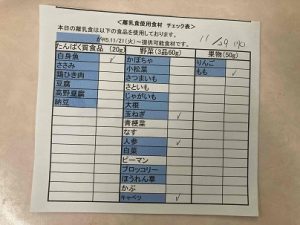 ＜離乳食使用食材 チェック表＞
本日の離乳食は以下の食品を使用しております。
R5.11/21(火)～提供可能食材です。
11/29
たんぱく質食品 (20g) 野菜(3品60g) 果物(50g)
白身魚 ✓ かぼちゃ りんご
ささみ 小松菜 もも ✓
鶏ひき肉 さつまいも
豆腐 さといも
高野豆腐 じゃがいも
納豆 大根
玉ねぎ ✓
青梗菜
なす
人参 ✓
白菜
ピーマン
ブロッコリー
ほうれん草
かぶ
キャベツ ✓